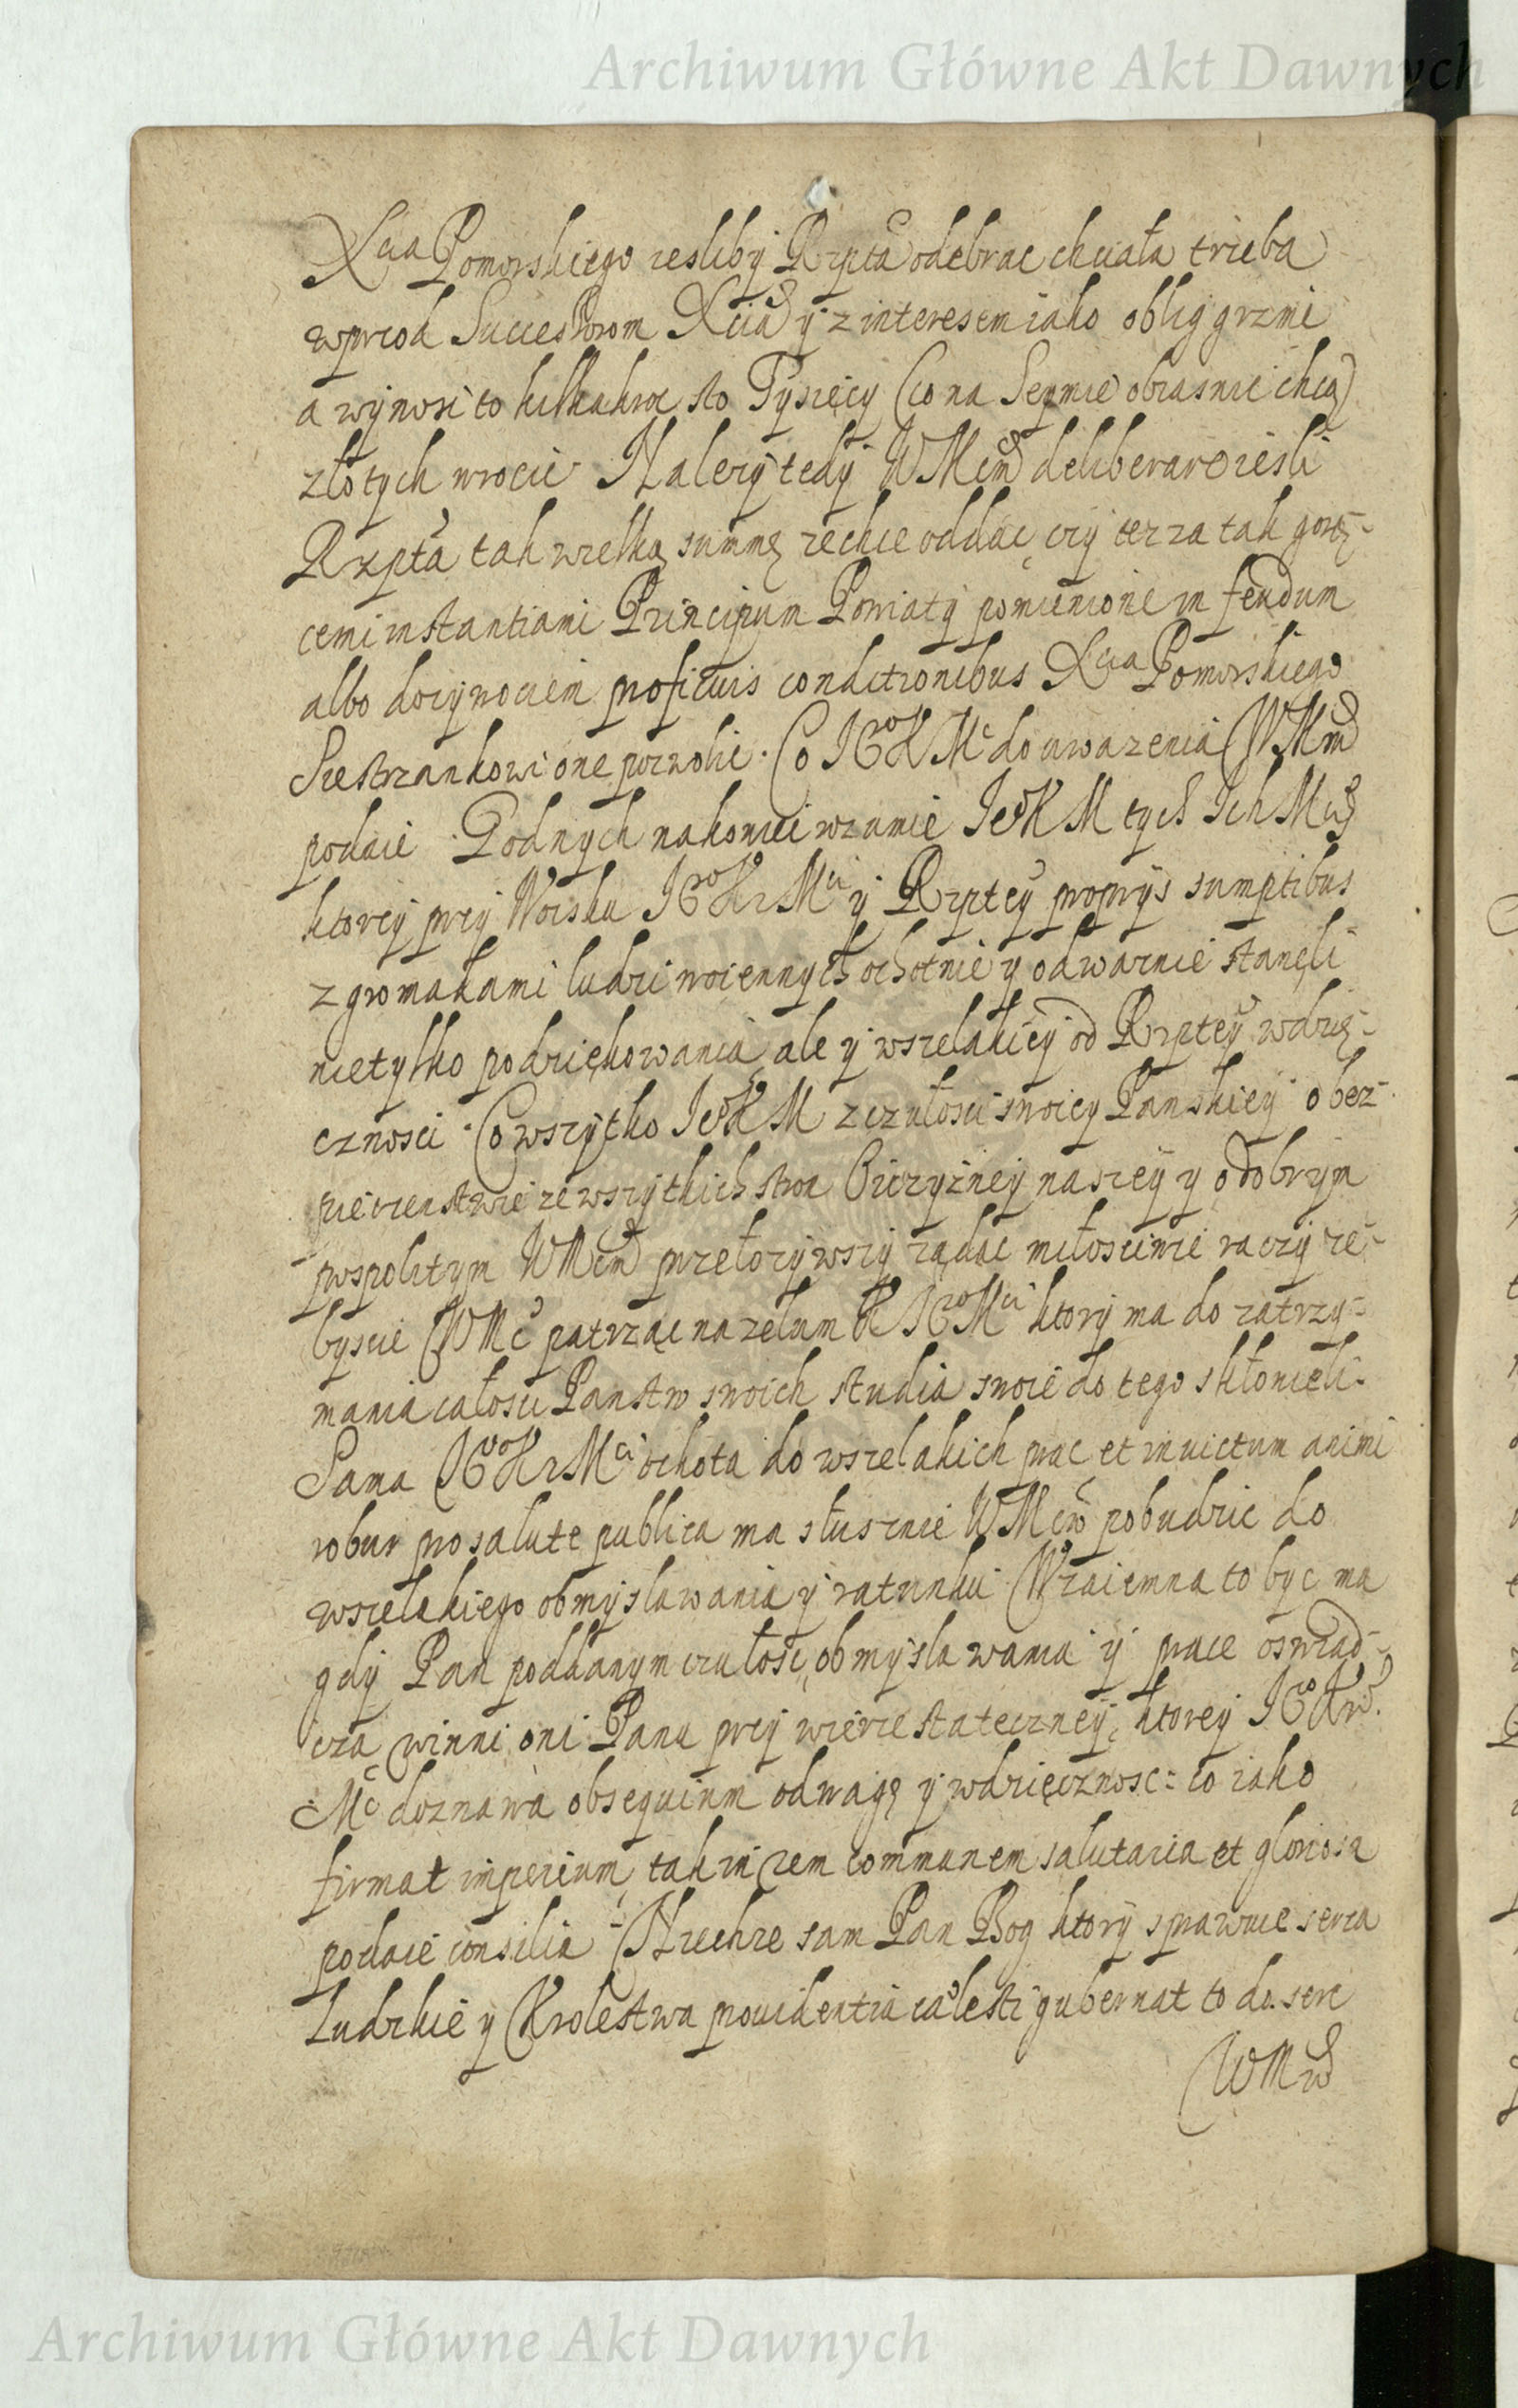 Archiwum Główne Akt Dawnych
Xcia Pomorskiego iesliby Rzpta odebrac chciała trzeba
wprzod Successorom Xcia y z interesem iako oblig grzmi
a wynosi to kilkakroc sto Tysięcy (co na Seymie obiasnic chcą)
złotych wrocic Nalezy tedy WMciom deliberare iesli
Rzpta tak wielką summę zechce oddac, czy tez za tak gorą-
cemi instantiami Principum Powiaty pomienione in feudum
albo dozywociem proficuis conditionibus Xcia Pomorskiego
Siestrzankowi one pozwolic. Co JeoKMc do uwazenia WMm
podaie. Godnych nakoniec wzamie JeoKM tych Ich Mciow
ktorzy przy Woisku JeoKrMci y Rzptey proprys sumptibus
z gromadami ludzi woiennych ochotnie y odwaznie stanęli
nietylko podziękowania, ale y wszelakiey od Rzptey wdzię-
cznosci. Co wszytko JeoKM z czułosci swoiey Panskiey o bez-
pieczenstwie ze wszytkich stron Oiczyzney naszey y o dobrym
pospolitym WMciom przełozywszy ządac miłosciwie raczy ze-
byscie WMc patrząc na zelum KJeoMci ktory ma do zatrzy-
mania całosci Panstw swoich studia swoie do tego skłonieli.
Sama JeoKrMci ochota do wszelakich prac et invictum animi
robur pro salute publica ma słusznie WMciow pobudzic do
wszelakiego obmyslawania y ratunku. Wzaiemna to byc ma
gdy Pan poddanym czułosc, obmyslawania y prace oswiad-
cza winni oni Panu przy wierze stateczney, ktorey JeoKrw.
Mc doznawa obsequium odwagę y wdzięcznosc: co iako
firmat imperium, tak in rem communem salutaria et gloriosa
podaie consilia. Niechze sam Pan Bog ktory sprawuie serca
Ludzkie y Krolestwa providentia cælesti gubernat to do serc
WMciow
Archiwum Główne Akt Dawnych